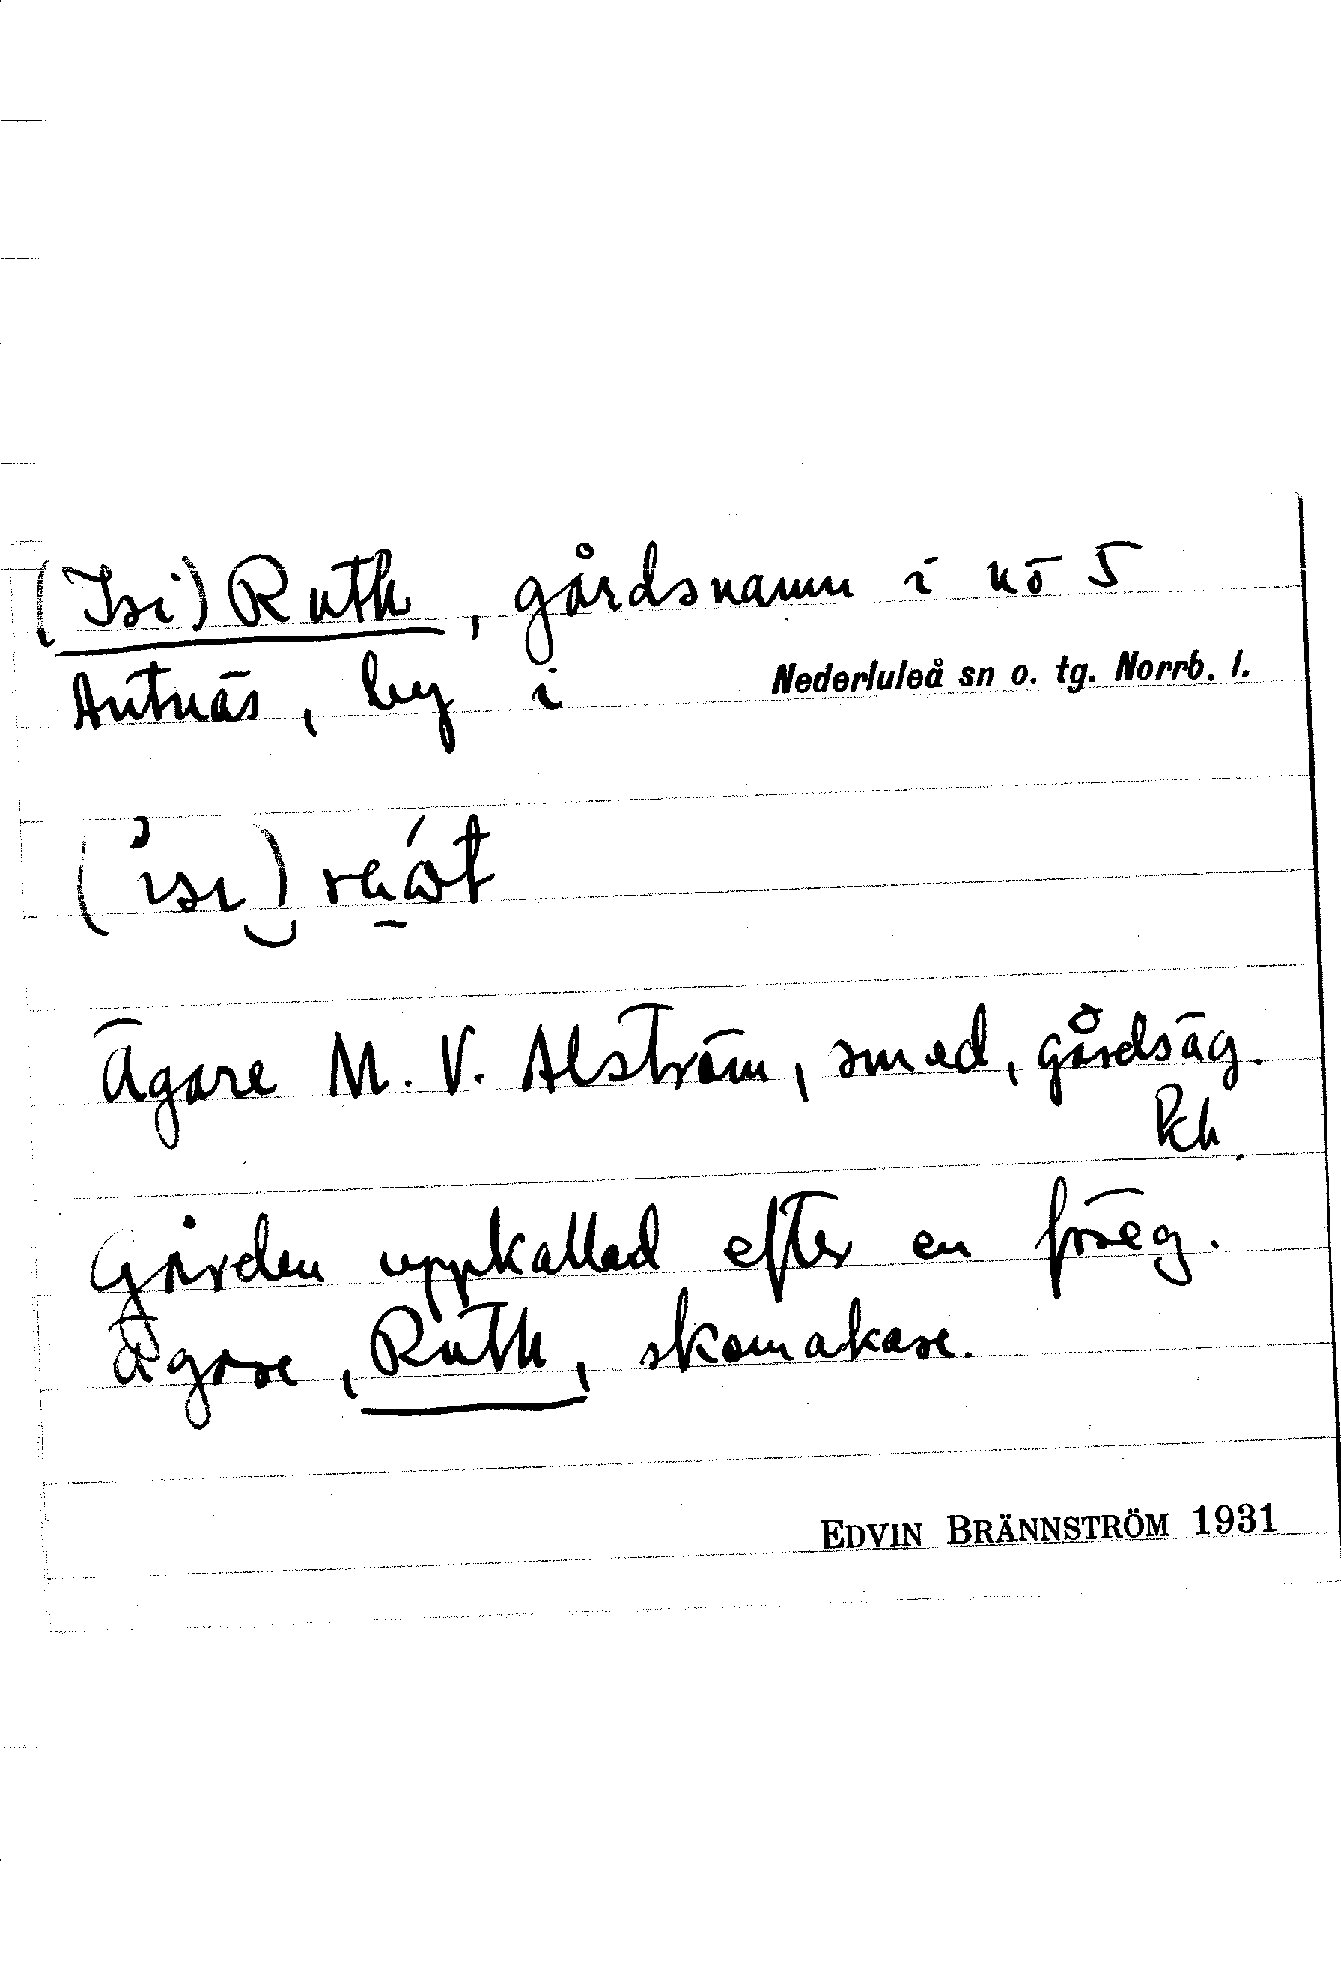 (Isi) Ruth, gårdsnamn i nö 5
Antnäs, by i Nederluleå sn o. tg. Norrb. l.
Ägare M. V. Alström, smed, gårdsäg.
Gården uppkallad efter en föreg.
Ägare, Ruth, skomakare.
EDVIN BRÄNNSTRÖM 1931